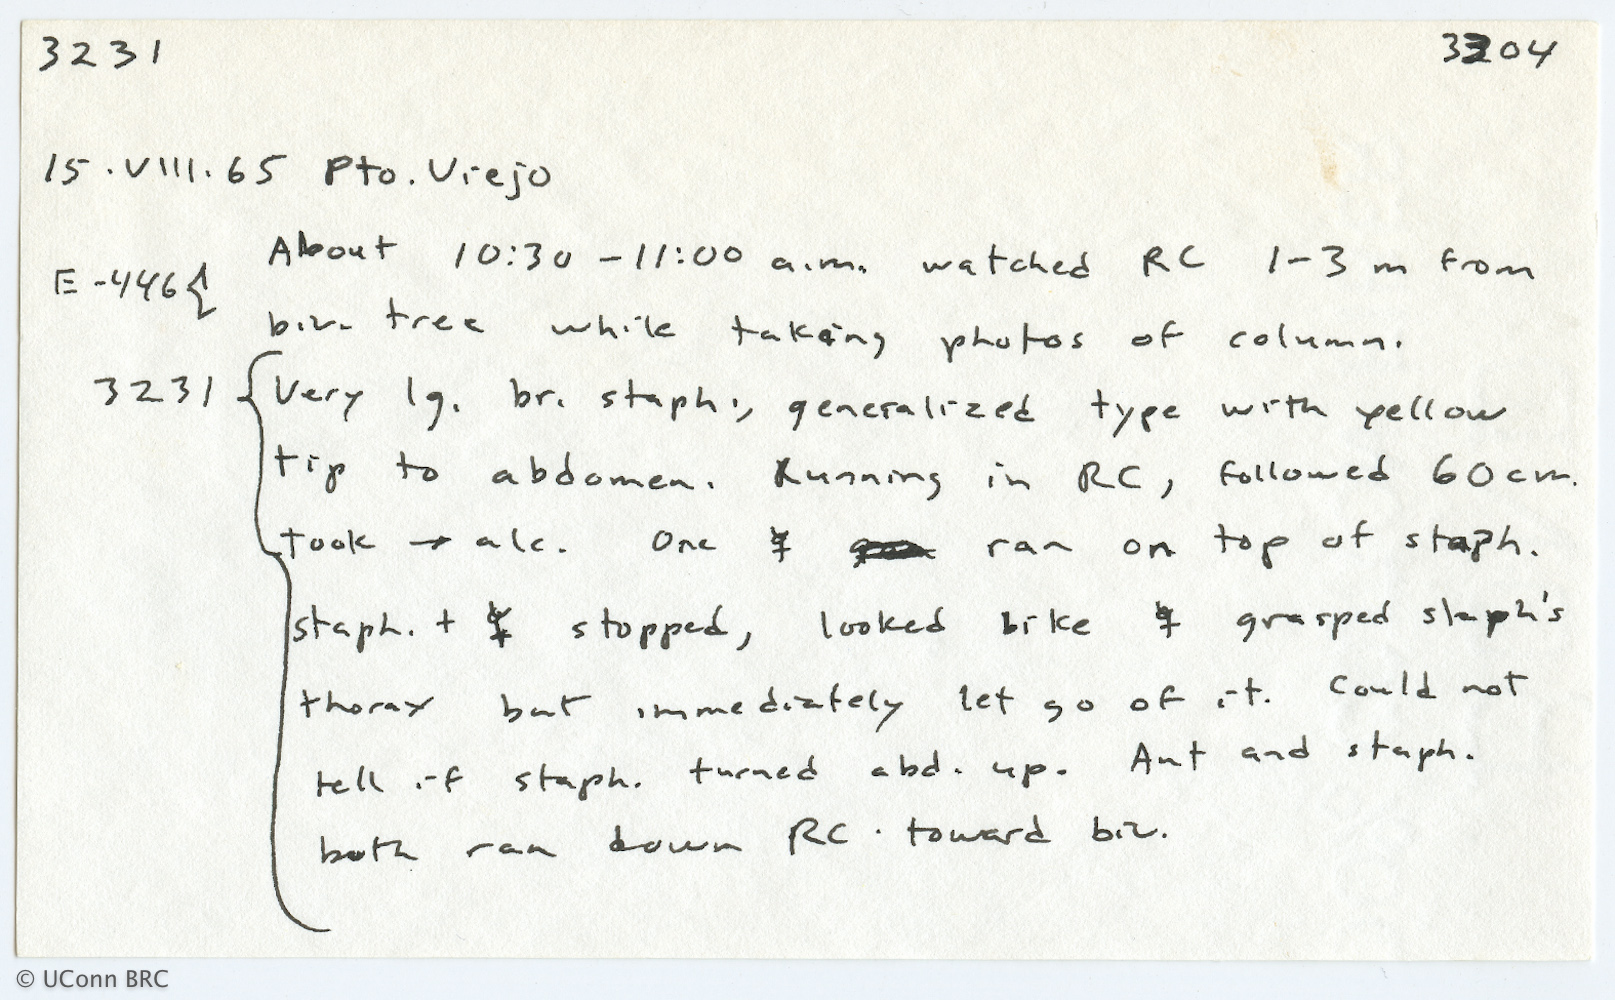 3231 3204
15.VIII.65 Pto. Viejo
About 10:30-11:00 a.m. watched RC 1-3 m from
E-446 {
biv. tree while taking photos of column.
3231 { Very lg. br. staph., generalized type with yellow
tip to abdomen. Running in RC, followed 60cm.
took → alc. One ☿ ran on top of staph.
staph. + ☿ stopped, looked like ☿ grasped staph's
thorax but immediately let go of it. Could not
tell if staph. turned abd. up. Ant and staph.
both ran down RC toward biv.
© UConn BRC